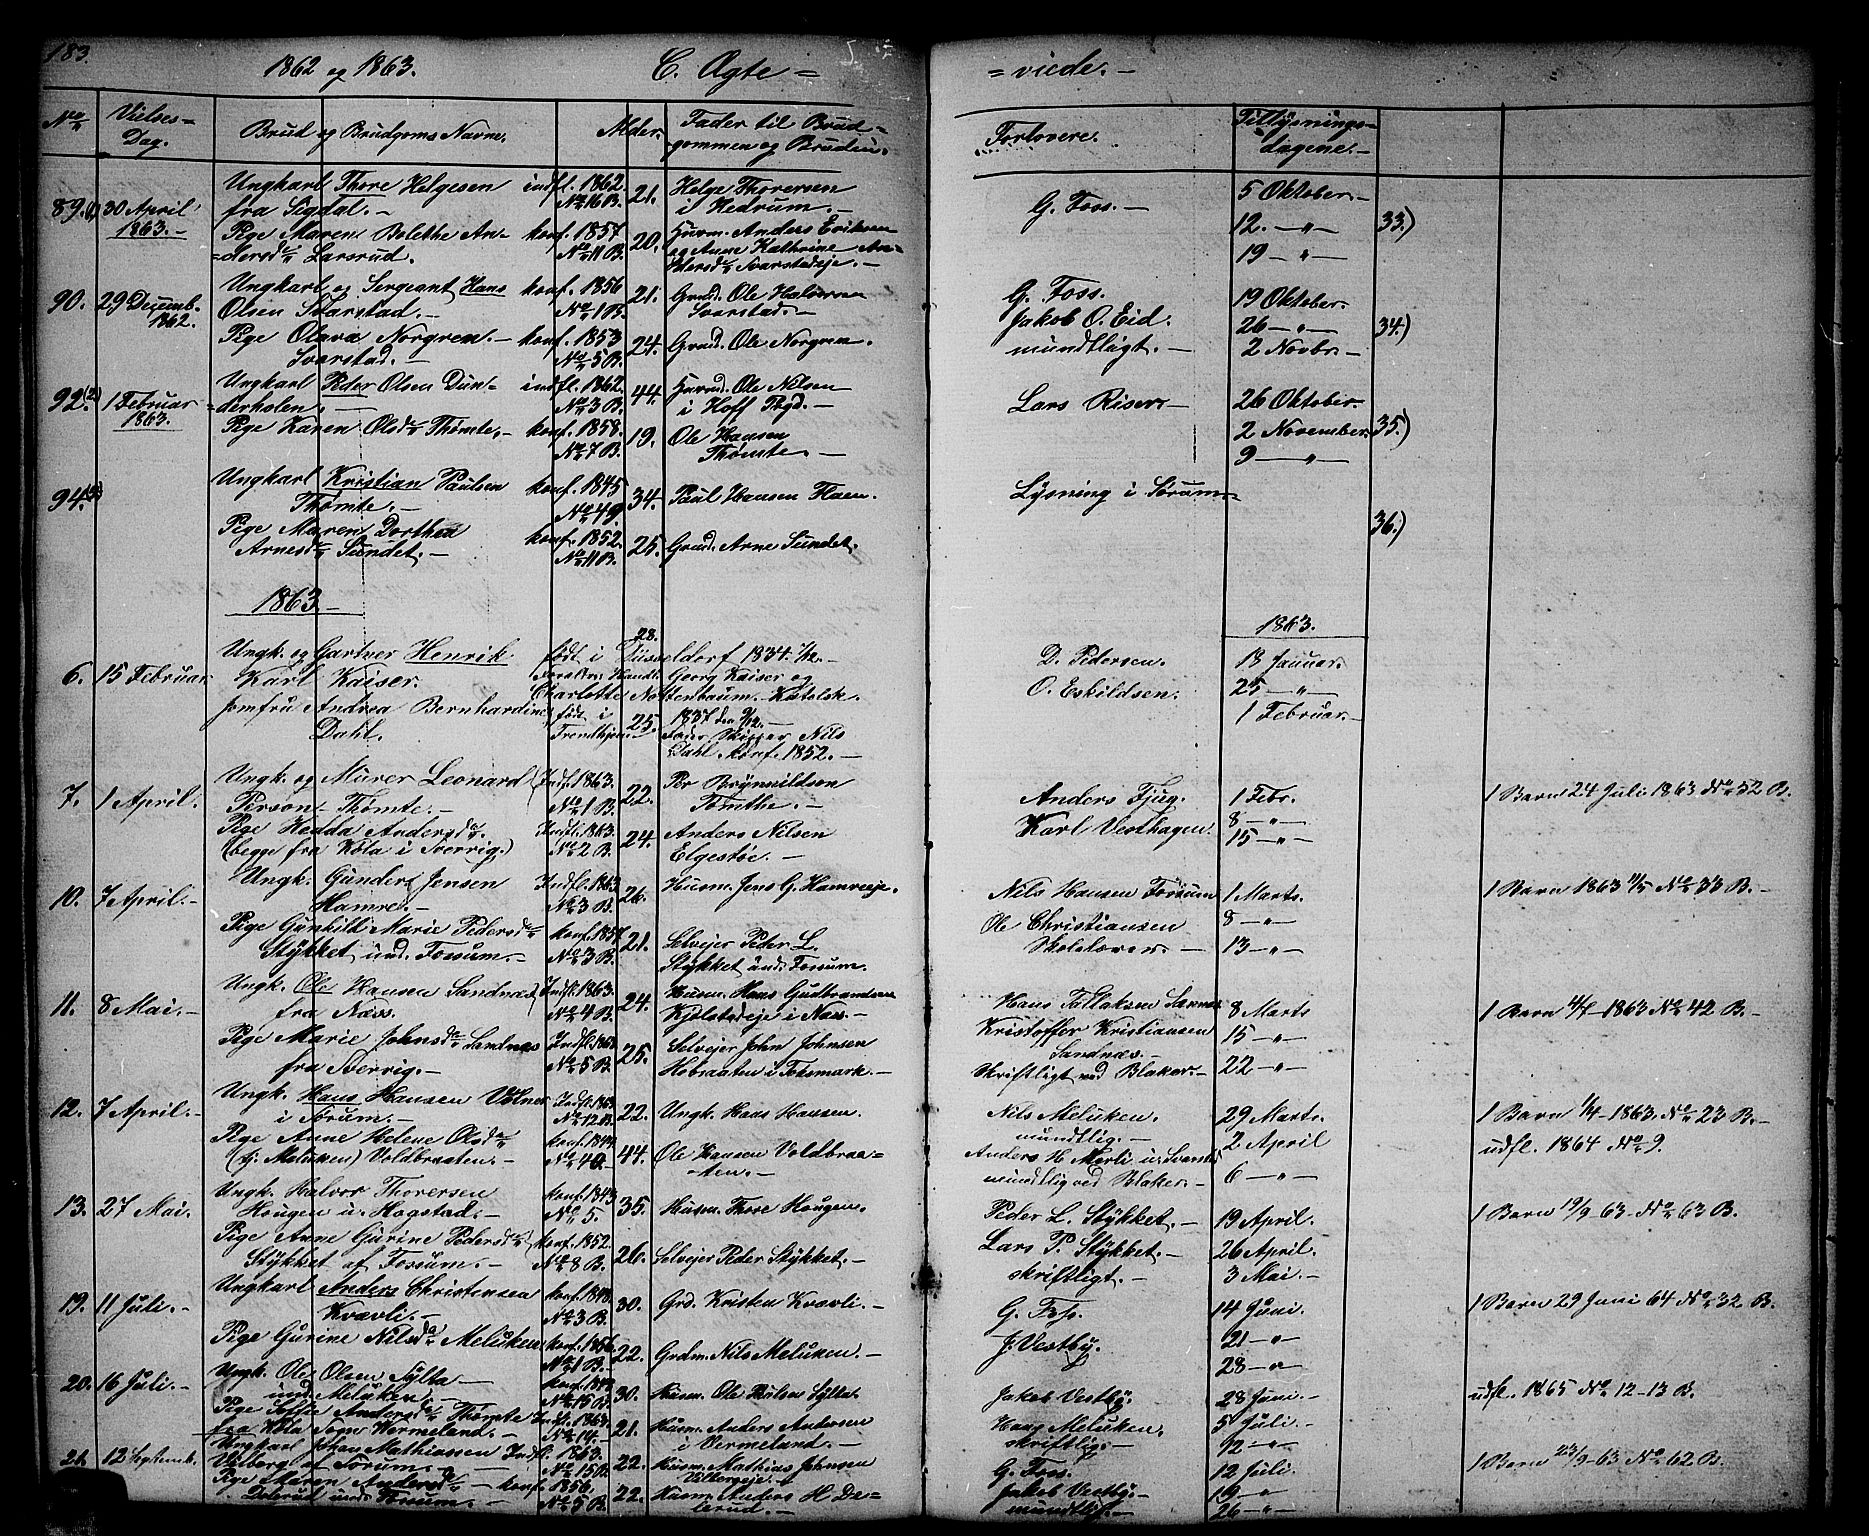 183.
1862 og 1863. C. Ægte =
= viede. -
No Vielses= Dag. Brud og Brudgoms Navne. Alder. Fader til Brud= gommen og Bruden.
Forlovere. Tillysnings= dagene. -
Ungkarl Thore Helgesen indfl. 1862 21. Helge Thoresen
89. 30 April fra Sigdal. - No 16 B. i Hedrum. - G. Foss. - 5 Oktober. -
1863. - Pige Maren Bolethe An= konf. 1857 20. Husm. Anders Eriksen 12. - " - 33.)
dersdr Larsrud. No 11 B. og Anne Kathrine An= 19 - " -
dersdr Svarstadeje. -
Ungkarl og Sergeant Hans konf. 1856 21. Grmd. Ole Halvorsen G. Foss. 19 Oktober.
90. 29 Decemb. 1862. Olsen Svarstad. - No 1 B. Svarstad. - Jakob O. Eid. 26 - " - 34.)
Pige Olava Norgren. - konf. 1853 24. Grmd. Ole Norgren. mundtligt. - 2 Novbr. -
Svarstad. - No 5 B.
Ungkarl Peder Olsen Dun= indfl. 1862 44. Ole Nilsen
92. 1 Februar derholen. - No 3 B. i Hoff Pgd. - Lars Riser - 26 Oktober.
1863. Pige Karen Olsdr Thømte. - konf. 1858. 19. Ole Hansen 2 November. 35.)
No 7 B. Thømte. - 9 - " -
Ungkarl Kristian Paulsen konf. 1845 34. Paul Hansen Flaen. Lysning i Sørum -
94. Thømte. - No 49.
Pige Maren Dorthea konf. 1852. 25. Grmd. Arne Sundet. 36.)
Arnesdr Sundet. - No 11 B.
1863. -
1863.
Ungk. og Gartner Henrik født i Düsseldorf 1834 28. D. Pedersen. 18 Januar.
6. 15 Februar Karl Kaiser. Georg Kaiser og O. Eskildsen. 25 - " -
Charlotte Nottenbaum. Katolsk. 1 Februar. -
Jomfru Andrea Bernhardine født i 25. 1837 den
Dahl. Trondhjem Skipper Nils
Dahl Konf. 1852. -
Ungk. og Murer Leonard Indfl. 1863. 22. Per Brynnildson
7. 1 April. Person Thømte. - No 1 B. Tomthe. - Anders Fjug. 1 Febr. 1 Barn 24 Juli 1863 No 52 B.
Pige Hedda Andersdr. Indfl. 1863. 24. Anders Nilsen Karl Vesthagen. 8 - " -
(begge fra Köla i Sverrig.) No 2 B. Elgestøe. - 15 - " -
Ungk. Gunder Jensen Indfl. 1863 26. Husm. Jens G. Hamreeje. Nils Hansen Forsum 1 Marts.
10. 7 April. - Hamre. - No 3 B. 1 Barn 1863 11/5 No 33 B. -
Pige Gunhild Marie Pedersdr konf. 1857 21. Selvejer Peder L. Ole Christiansen 8 - " -
Stykket und. Forsum. - No 3 B. Stykket und. Forsum. - Skolelærer. - 13 - " -
Ungk. Ole Hansen Sandnæs Indfl. 1863. 24. Husm. Hans Gudbrandsen Hans Tollaksen 8 Marts
11. 8 Mai. - fra Næss. No 4 B. Kjølstadeje i Næs. - Kristoffer Kristiansen 15 - " - 1 Barn 1863 No 42 B. -
Pige Marie Johnsdr Sandnæs Indfl. 1863 25. Selvejer John Johnsen Sandnæs. -
fra Sverrig. - No 5 B. Hobraaten i Foksmark. - Skriftligt ved Blaker. - 22 - " -
Ungk. Hans Hansen Völner Indfl. 1863 22. Ungk. Hans Hansen. Nils Meluken. 29 Marts.
12. 7 April. - i Sørum. - No 12 B. mundtlig. - 2 April 1 Barn 1/4 - 1863. No 23 B. -
Pige Anne Helene Olsdr konf. 44. Ole Hansen Voldbraa= Anders H. Mørli u. Svarstad 6 - " - udfl. 1864 No 9.
(i Meluken) Voldbraaten. - No 40. - ten. - mundtlig ved Blaker. -
Ungk. Halvor Thoresen konf. 1843 35. Husm. Thore Hougen. Peder L. Stykket. - 19 April.
13. 27 Mai. Hougen u. Hogstad. - No 5. 1 Barn 19/9 - 63 - No 63 B.
Pige Anne Gurine Pedersdr konf. 1852. 26. Selvejer Peder Stykket. - Lars P. Stykket. - 26 April.
Stykket af Forsum. - No 8 B. skriftligt. - 3 Mai. -
Ungkarl Anders Christensen konf. 1848. 30. Grd. Kristen Kvævli. - G. Foss. 14 Juni.
19. 11 Juli. - Kvævli. - No 3 B. J. Vestby. 21 - " - 1 Barn 29 Juni 64 No 32 B.
Pige Gurine Nilsdr Meluken konf. 1856 22. Grdm. Nils Meluken. - 28 - " -
No 1 B.
Ungk. Ole Olsen Sylta - konf. 30. Husm. Ole Sylta. Jakob Vestby. 28 Juni. -
20. 16 Juli. - und. Meluken. - No 15 B. Hans Meluken. 5 Juli. - udfl. 1865 No 12 - 13 B.
Pige Sofie Andersdr Thømte Indfl. 1863. 21. Husm. Anders Andersen skriftlig. - 12 - " -
fra Köla Sogn Vermeland. - No 14. - i Vermeland. -
Ungkarl Johan Mathiassen Indfl. 1863. 22. Husm. Mathias Johnsen G. Foss. 12 Juli. -
21. 12 Septemb. Viberg af Sørum. - No 15 B. Villergeje. - Jakob Vestby. 19 - " - 1 Barn 23/9 - 63 No 62 B.
Pige Maren Andersdr konf. 1856. 22. Husm. Anders H. De= mundtligt. - 26 - " -
Delerud und. Forsum. - No 5 B. lerud. -